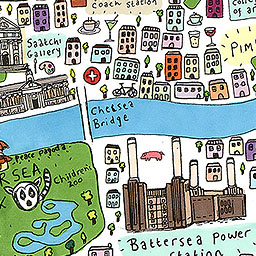 Coach station
colleg
of ar
Saatchi
Gallery
PIM
Chelsea
Bridge
Peace Pagoda
SEA
Children's
zoo
Battersea Power
Station